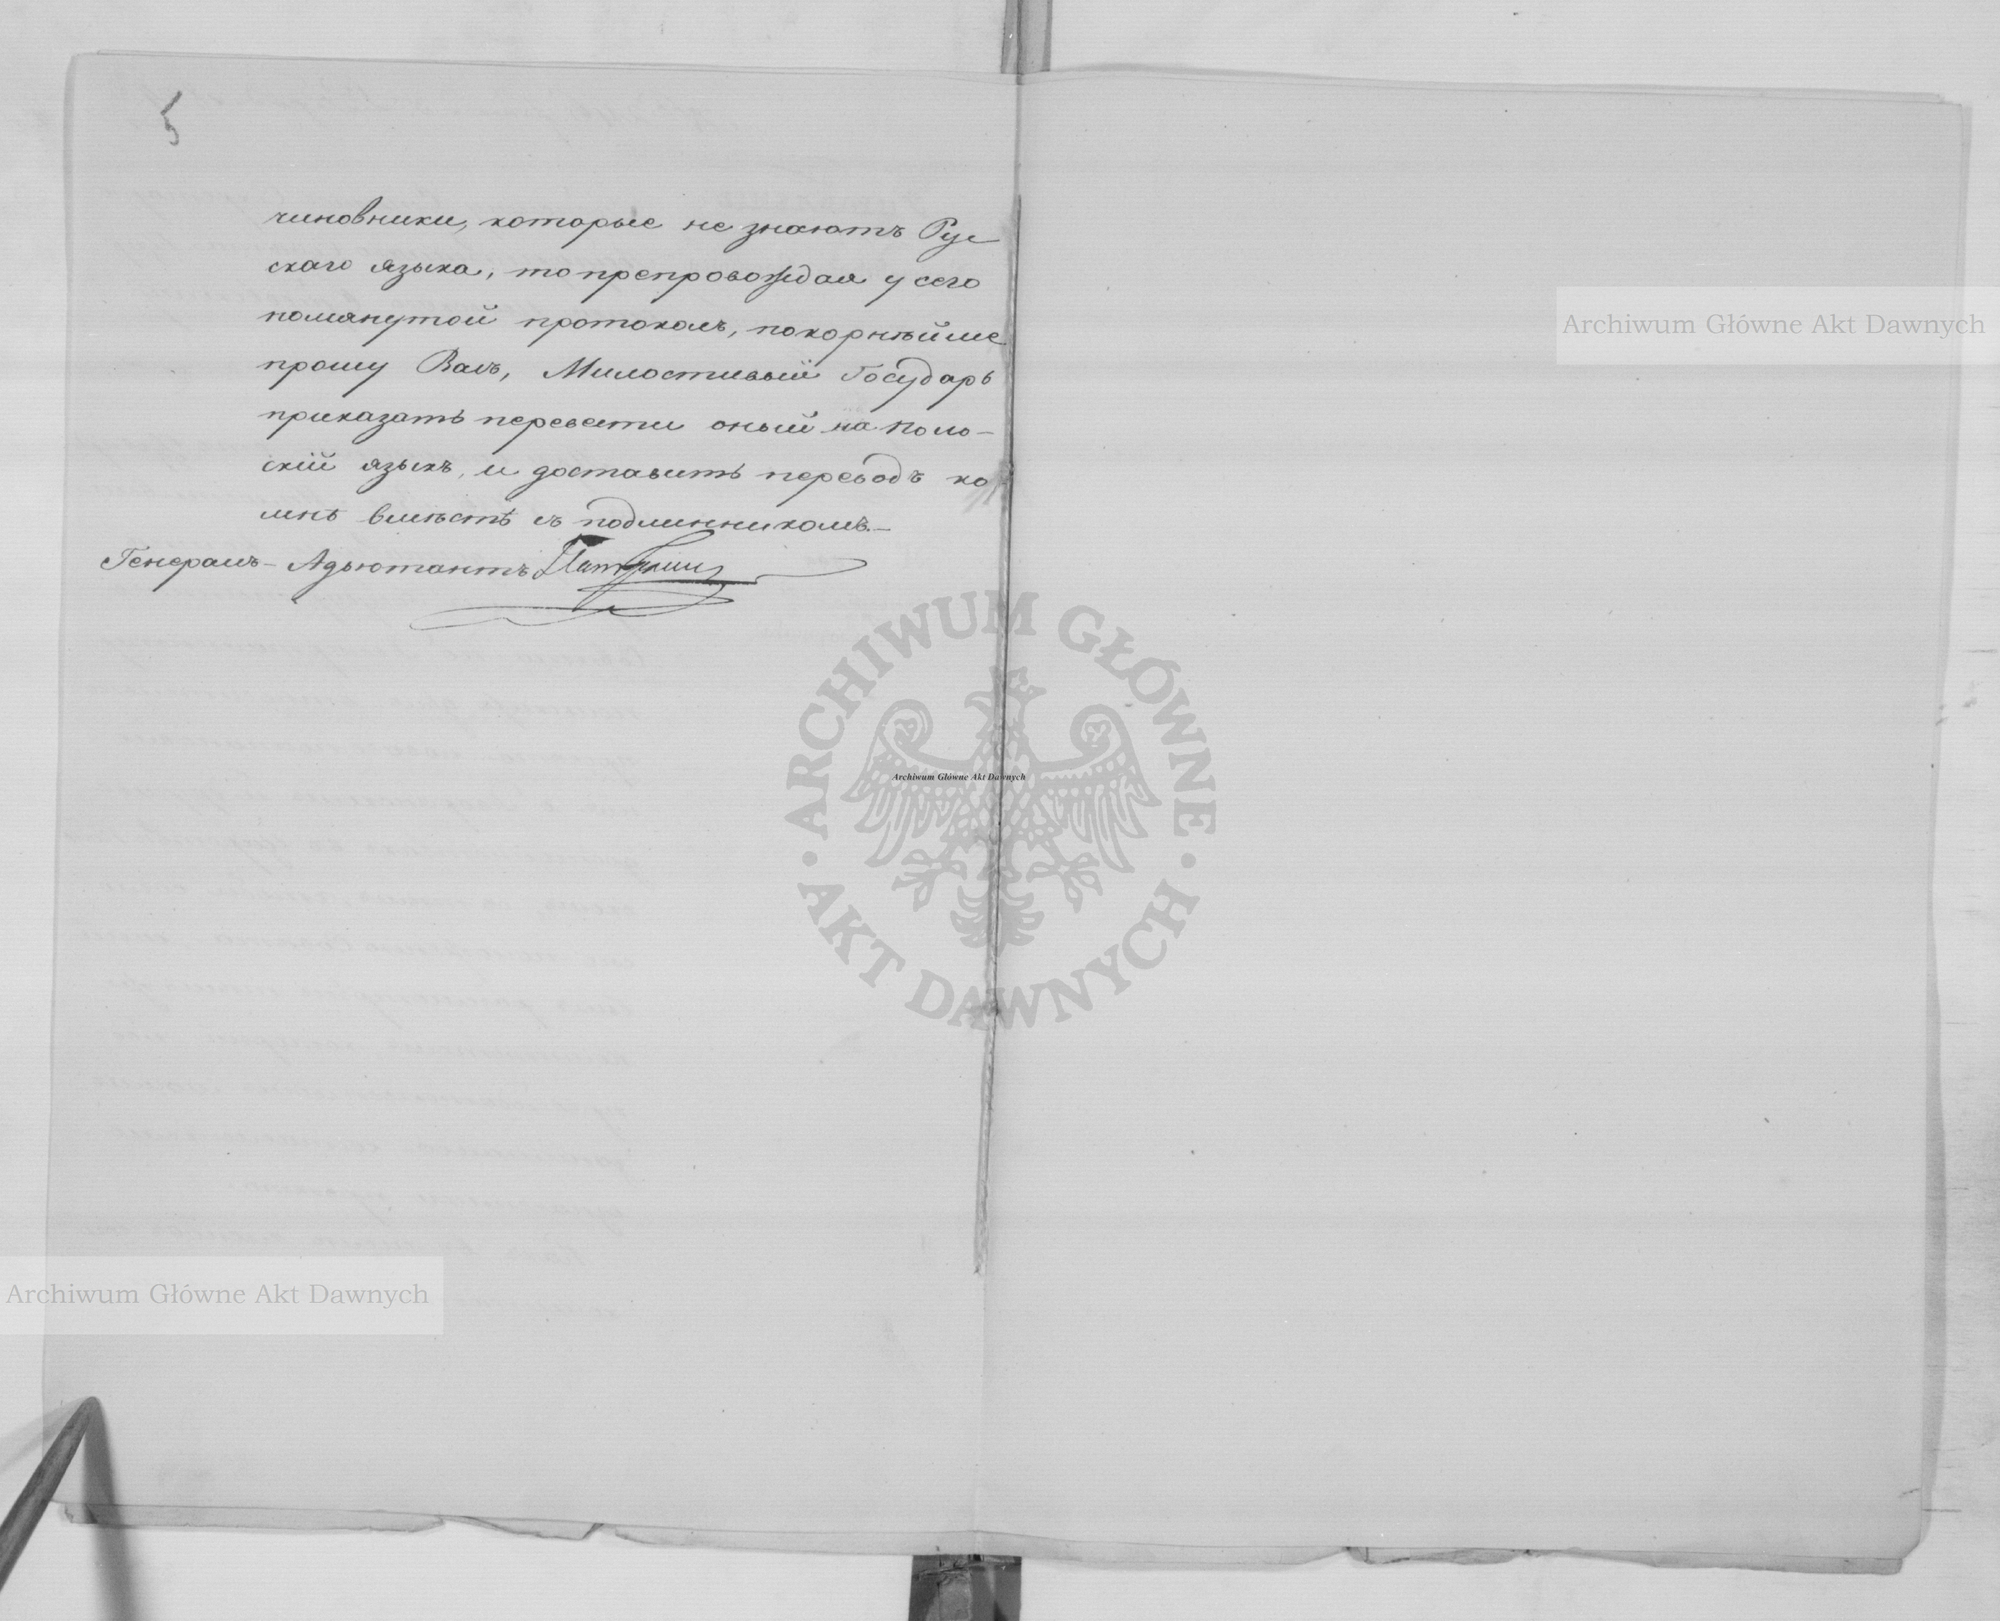 5
чиновники, которые не знаютъ Рус
скаго языка, то препровождая у сего
помянутой протоколъ, покорнѣйше
прошу Васъ, Милостивый Государь
приказать перевести оный на поль-
скій языкъ, и доставить переводъ ко
мнѣ вмѣстѣ съ подлинникомъ.—
Генералъ-Адъютантъ
Archiwum Główne Akt Dawnych
ARCHIWUM GŁÓWNE AKT DAWNYCH
Archiwum Główne Akt Dawnych
Archiwum Główne Akt Dawnych